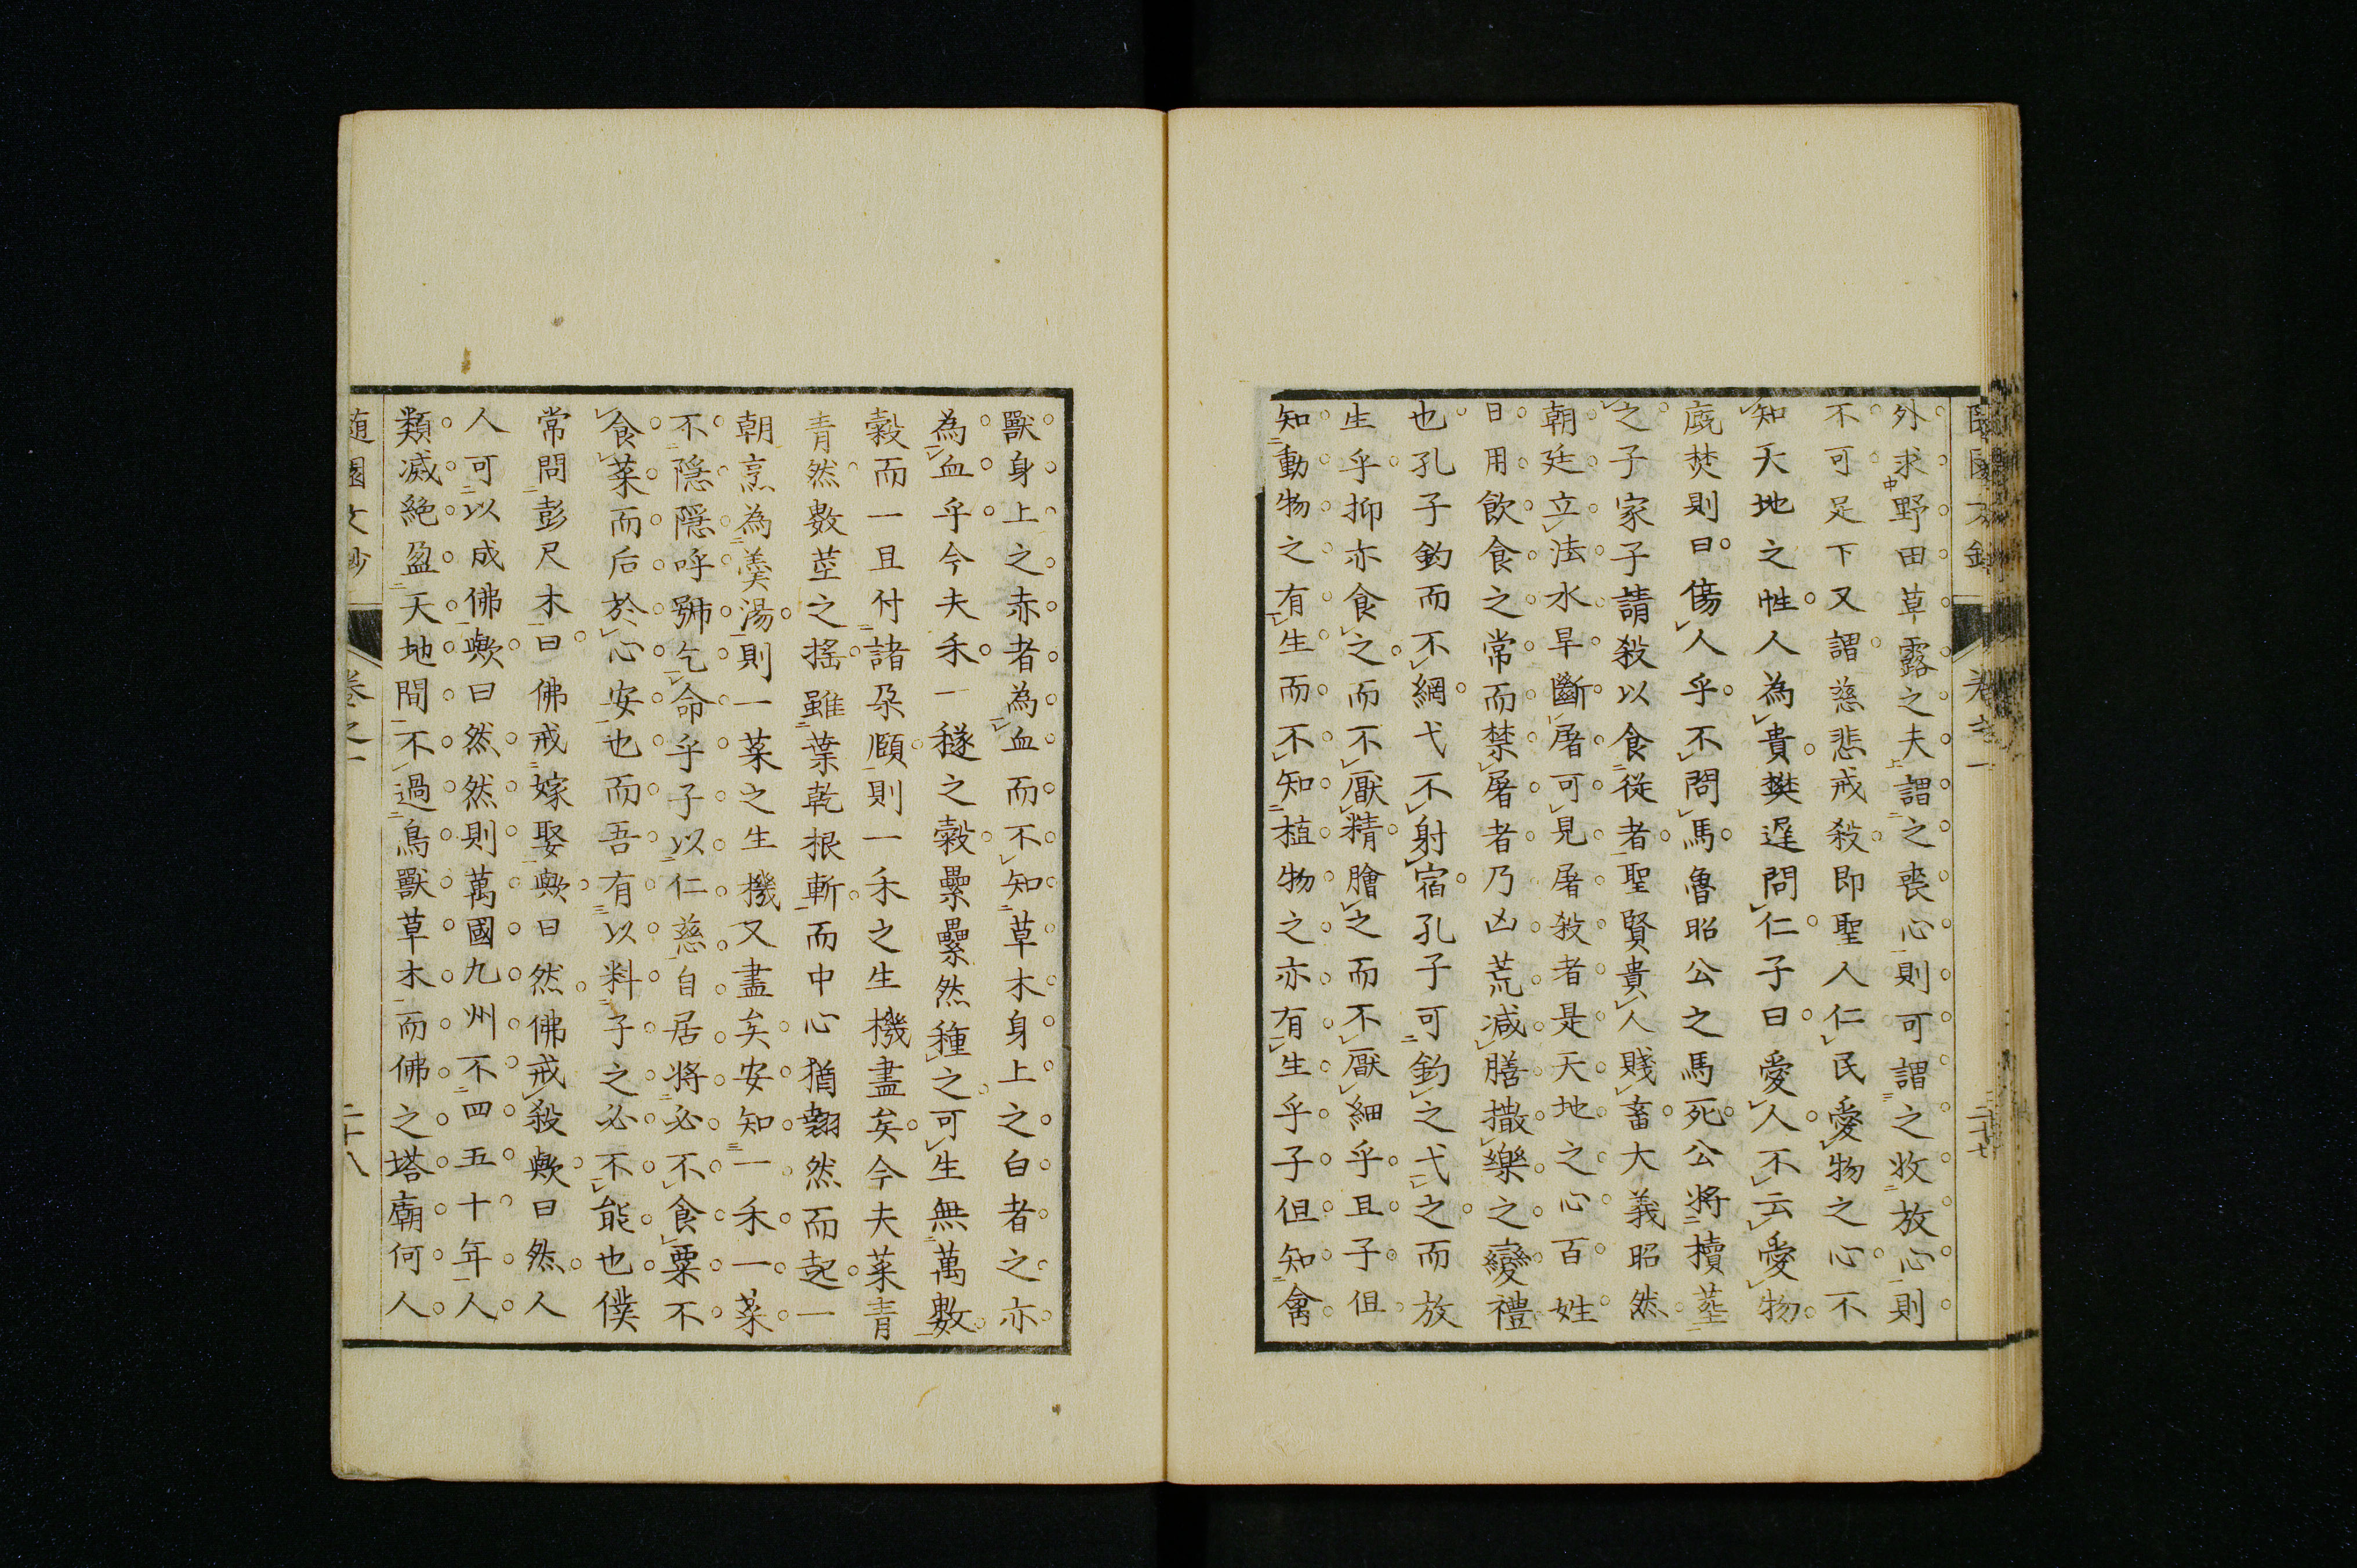 外求野田草露之夫謂之喪心則可謂之收放心則
不可足下又謂慈悲戒殺即聖人仁民愛物之心不
知天地之性人為貴樊遲問仁子曰愛人不云愛物
廐焚則曰傷人乎不問馬魯昭公之馬死公將櫝塟
之子家子請殺以食從者聖賢貴人賤畜大義昭然
朝廷立法水旱斷屠可見屠殺者是天地之心百姓
日用飲食之常而禁屠者乃凶荒減膳撒樂之變禮
也孔子釣而不網弋不射宿孔子可釣之弋之而放
生乎抑亦食之而不厭精膾之而不厭細乎且子但
知動物之有生而不知植物之亦有生乎子但知禽
獸身上之赤者為血而不知草木身上之白者之亦
為血乎今夫禾一穟之穀纍纍然種之可生無萬數
穀而一旦付諸朶頤則一禾之生機盡矣今夫菜青
青然數莖之搖雖葉乾根斬而中心猶翹然而起一
朝烹為羹湯則一菜之生機又盡矣安知一禾一菜
不隱隱呼號乞命乎子以仁慈自居將必不食粟不
食菜而后於心安也而吾有以料子之必不能也僕
常問彭尺木曰佛戒嫁娶歟曰然佛戒殺歟曰然人
人可以成佛歟曰然然則萬國九州不四五十年人
類滅絕盈天地間不過鳥獸草木而佛之塔廟何人
隨園文鈔 卷之一 二十八